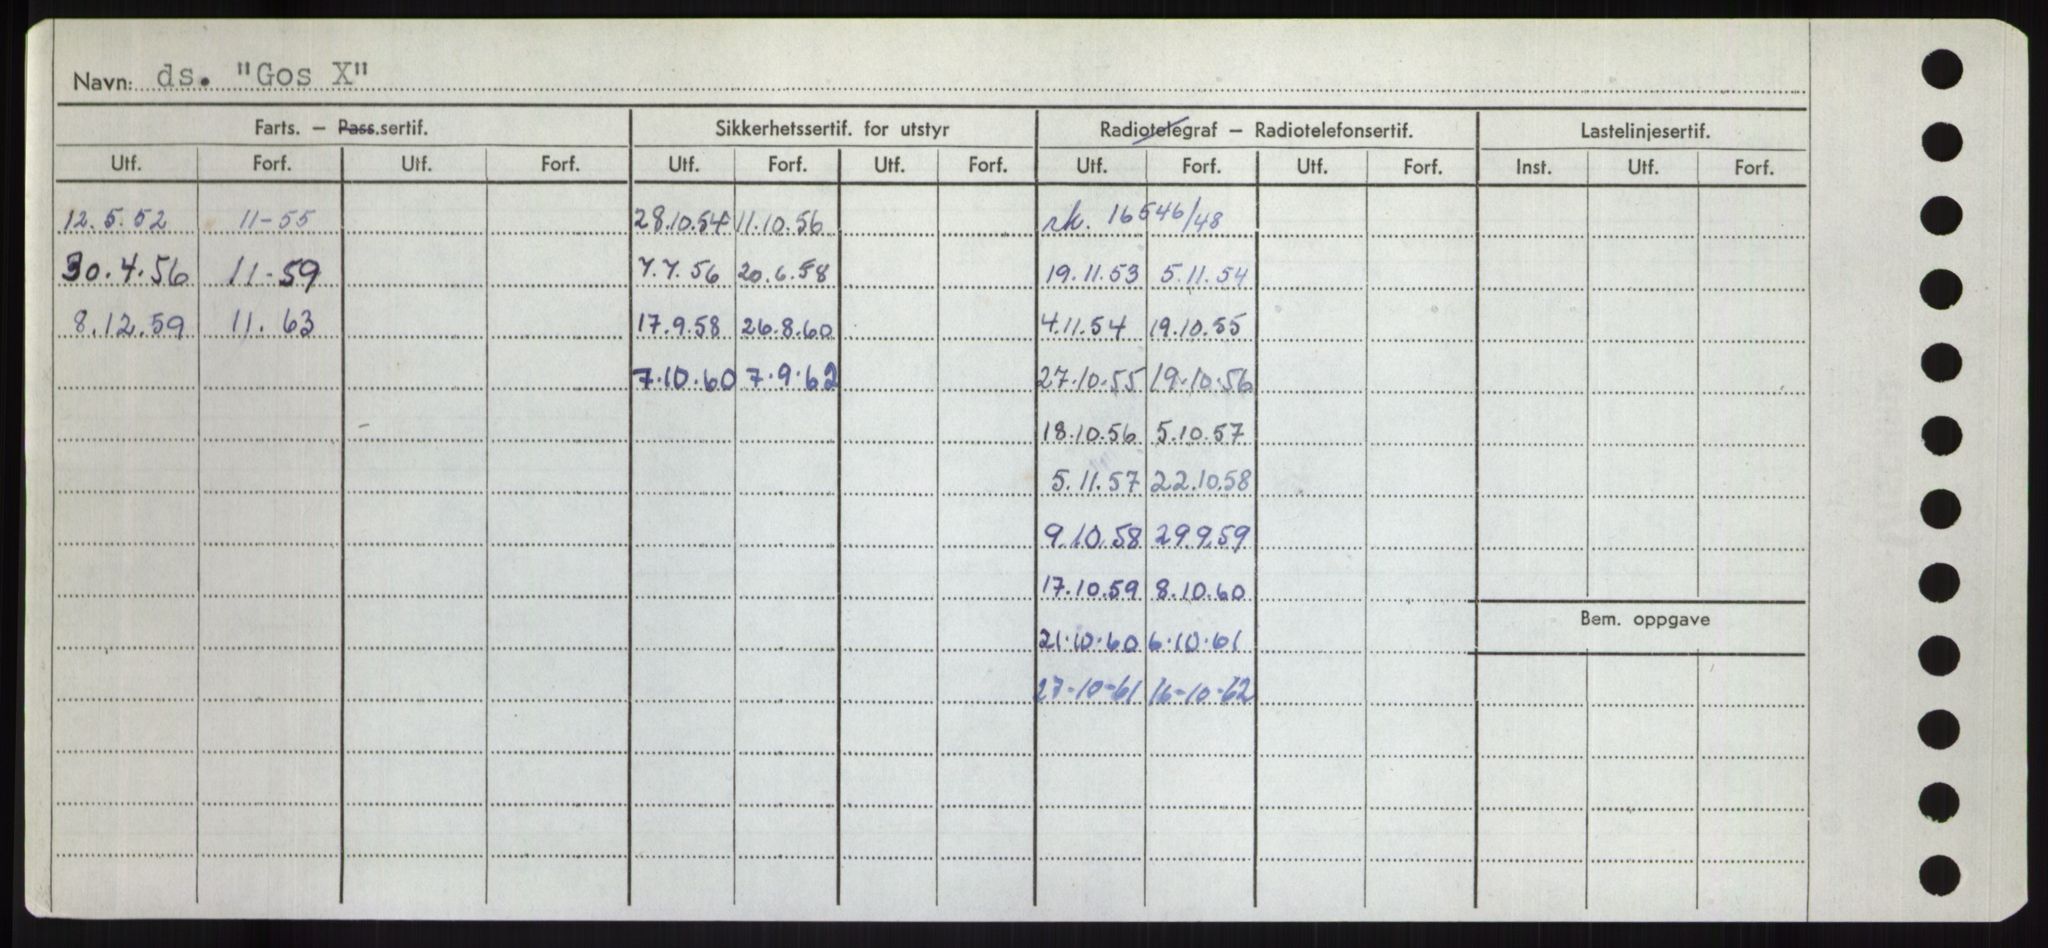 Navn: ds. "Gos X"
Farts. – Pass.sertif. Sikkerhetssertif. for utstyr Radiotelegraf – Radiotelefonsertif. Lastelinjesertif.
Utf. Forf. Utf. Forf. Utf. Forf. Utf. Forf. Utf. Forf. Utf. Forf. Inst. Utf. Forf.
12.5.52 11-55 28.10.54 11.10.56 rk. 16546/48
30.4.56 11-59 7.7.56 20.6.58 19.11.53 5.11.54
8.12.59 11.63 17.9.58 26.8.60 4.11.54 19.10.55
7.10.60 7.9.62 27.10.55 19.10.56
18.10.56 5.10.57
5.11.57 22.10.58
9.10.58 29.9.59
17.10.59 8.10.60
Bem. oppgave
21.10.60 6.10.61
27-10-61 16-10-62